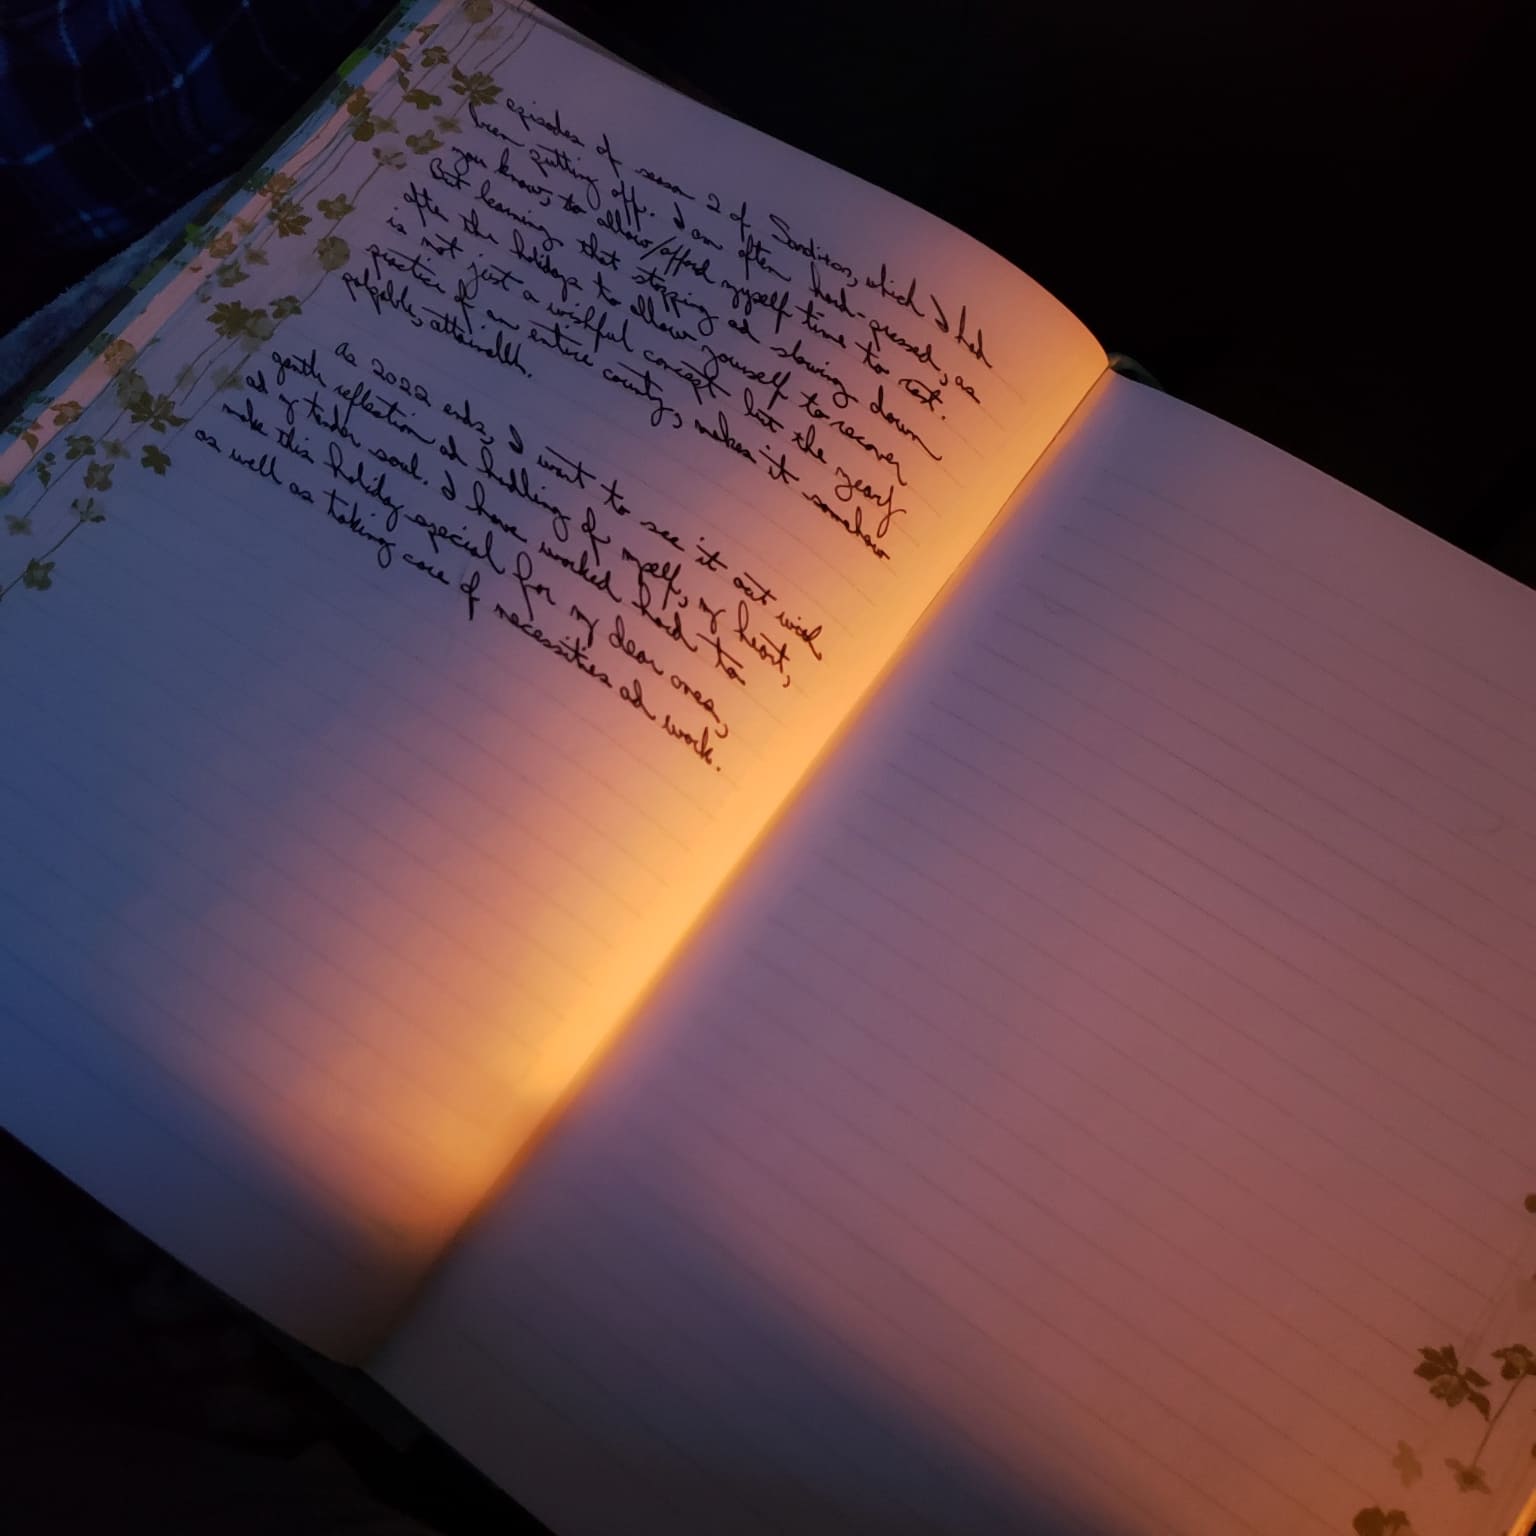 episodes of season 2 of Sanditon, which I had
been putting off. I am often hard-pressed, as
you know, to allow/afford myself time to rest.
But learning that stopping ad slowing down
after the holidays to allow yourself to recover
is not just a wishful concept but the yearly
practice of an entire country, makes it somehow
palpable, attainable.
As 2022 ends, I want to see it out with
gentle reflection ad huddling of myself, my heart,
ad my tender soul. I have worked hard to
make this holiday special for my dear ones,
as well as taking care of necessities ad work.